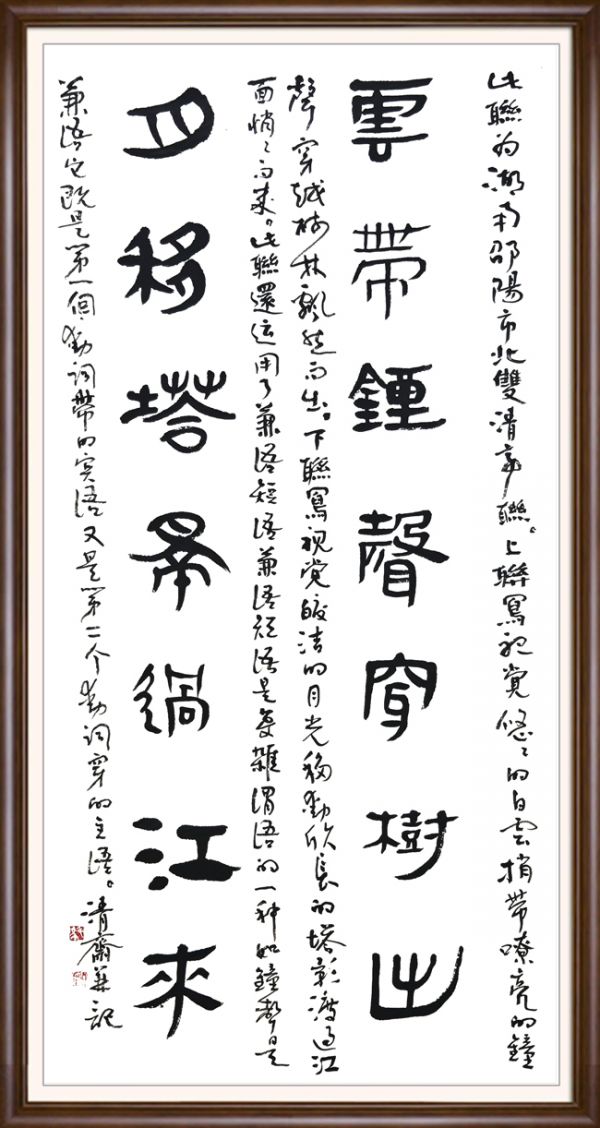 此聯为湖南邵陽市北雙清亭聯。上聯寫視覺悠〻的白云捎帶嘹亮的鐘
雲帶鍾聲穿樹出
聲穿越树林飄然而出。下聯寫視觉皎洁的月光移動欣長的塔影渡过江
面悄〻而来。此聯還运用了兼语短语兼语短语是复雜谓语的一种如鐘聲是
月移塔景過江來
兼语它既是第一個動词帶的宾语又是第二个動词穿的主语。清齋并記